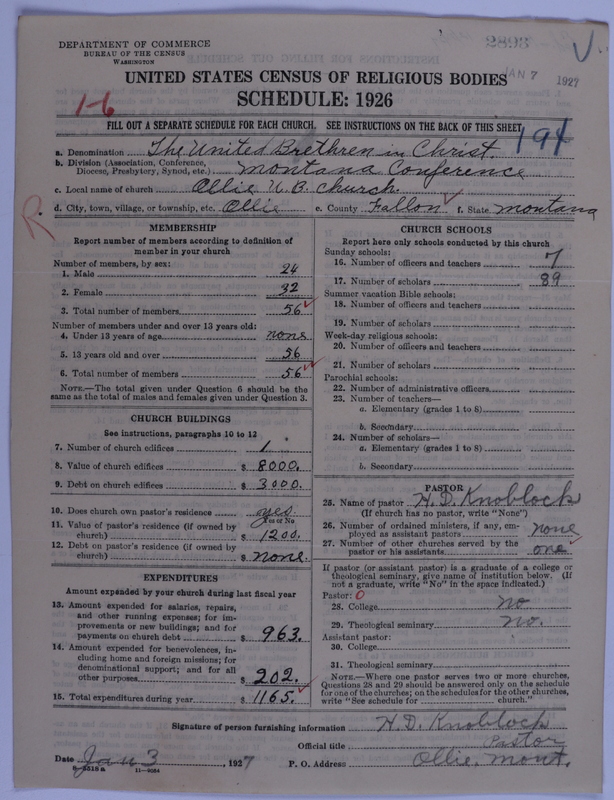 DEPARTMENT OF COMMERCE
BUREAU OF THE CENSUS
WASHINGTON
3982
UNITED STATES CENSUS OF RELIGIOUS BODIES
JAN 7 1927
SCHEDULE: 1926
1-6
FILL OUT A SEPARATE SCHEDULE FOR EACH CHURCH. SEE INSTRUCTIONS ON THE BACK OF THIS SHEET
194
a. Denomination The United Brethren in Christ.
b. Division (Association, Conference, Diocese, Presbytery, Synod, etc.) Montana Conference
c. Local name of church Ollie U. B. Church.
d. City, town, village, or township, etc. Ollie e. County Fallon f. State Montana
R.
MEMBERSHIP
Report number of members according to definition of
member in your church
Number of members, by sex:
1. Male 24
2. Female 32
3. Total number of members 56
Number of members under and over 13 years old:
4. Under 13 years of age none
5. 13 years old and over 56
6. Total number of members 56
NOTE.—The total given under Question 6 should be the
same as the total of males and females given under Question 3.
CHURCH BUILDINGS
See instructions, paragraphs 10 to 12
7. Number of church edifices 1
8. Value of church edifices $ 8000.
9. Debt on church edifices $ 3000.
10. Does church own pastor's residence? yes.
(Yes or No)
11. Value of pastor's residence (if owned by
church) $ 1200.
12. Debt on pastor's residence (if owned by
church) $ none.
EXPENDITURES
Amount expended by your church during last fiscal year
13. Amount expended for salaries, repairs,
and other running expenses; for im-
provements or new buildings; and for
payments on church debt $ 963.
14. Amount expended for benevolences, in-
cluding home and foreign missions; for
denominational support; and for all
other purposes $ 202.
15. Total expenditures during year $ 1165.
CHURCH SCHOOLS
Report here only schools conducted by this church
Sunday schools:
16. Number of officers and teachers 7
17. Number of scholars 89
Summer vacation Bible schools:
18. Number of officers and teachers
19. Number of scholars
Week-day religious schools:
20. Number of officers and teachers
21. Number of scholars
Parochial schools:
22. Number of administrative officers
23. Number of teachers—
a. Elementary (grades 1 to 8)
b. Secondary
24. Number of scholars—
a. Elementary (grades 1 to 8)
b. Secondary
PASTOR
25. Name of pastor H. D. Knoblock
(If church has no pastor, write "None")
26. Number of ordained ministers, if any, em-
ployed as assistant pastors none
27. Number of other churches served by the
pastor or his assistants one
If pastor (or assistant pastor) is a graduate of a college or
theological seminary, give name of institution below. (If
not a graduate, write "No" in the space indicated.)
Pastor: 0
28. College no
29. Theological seminary no.
Assistant pastor:
30. College
31. Theological seminary
NOTE.—Where one pastor serves two or more churches,
Questions 28 and 29 should be answered only on the schedule
for one of the churches; on the schedules for the other churches,
write "See schedule for church."
Signature of person furnishing information H. D. Knoblock
Official title Pastor
Date Jan 3, 1927 P. O. Address Ollie, Mont.
8-5518 a 11-9084